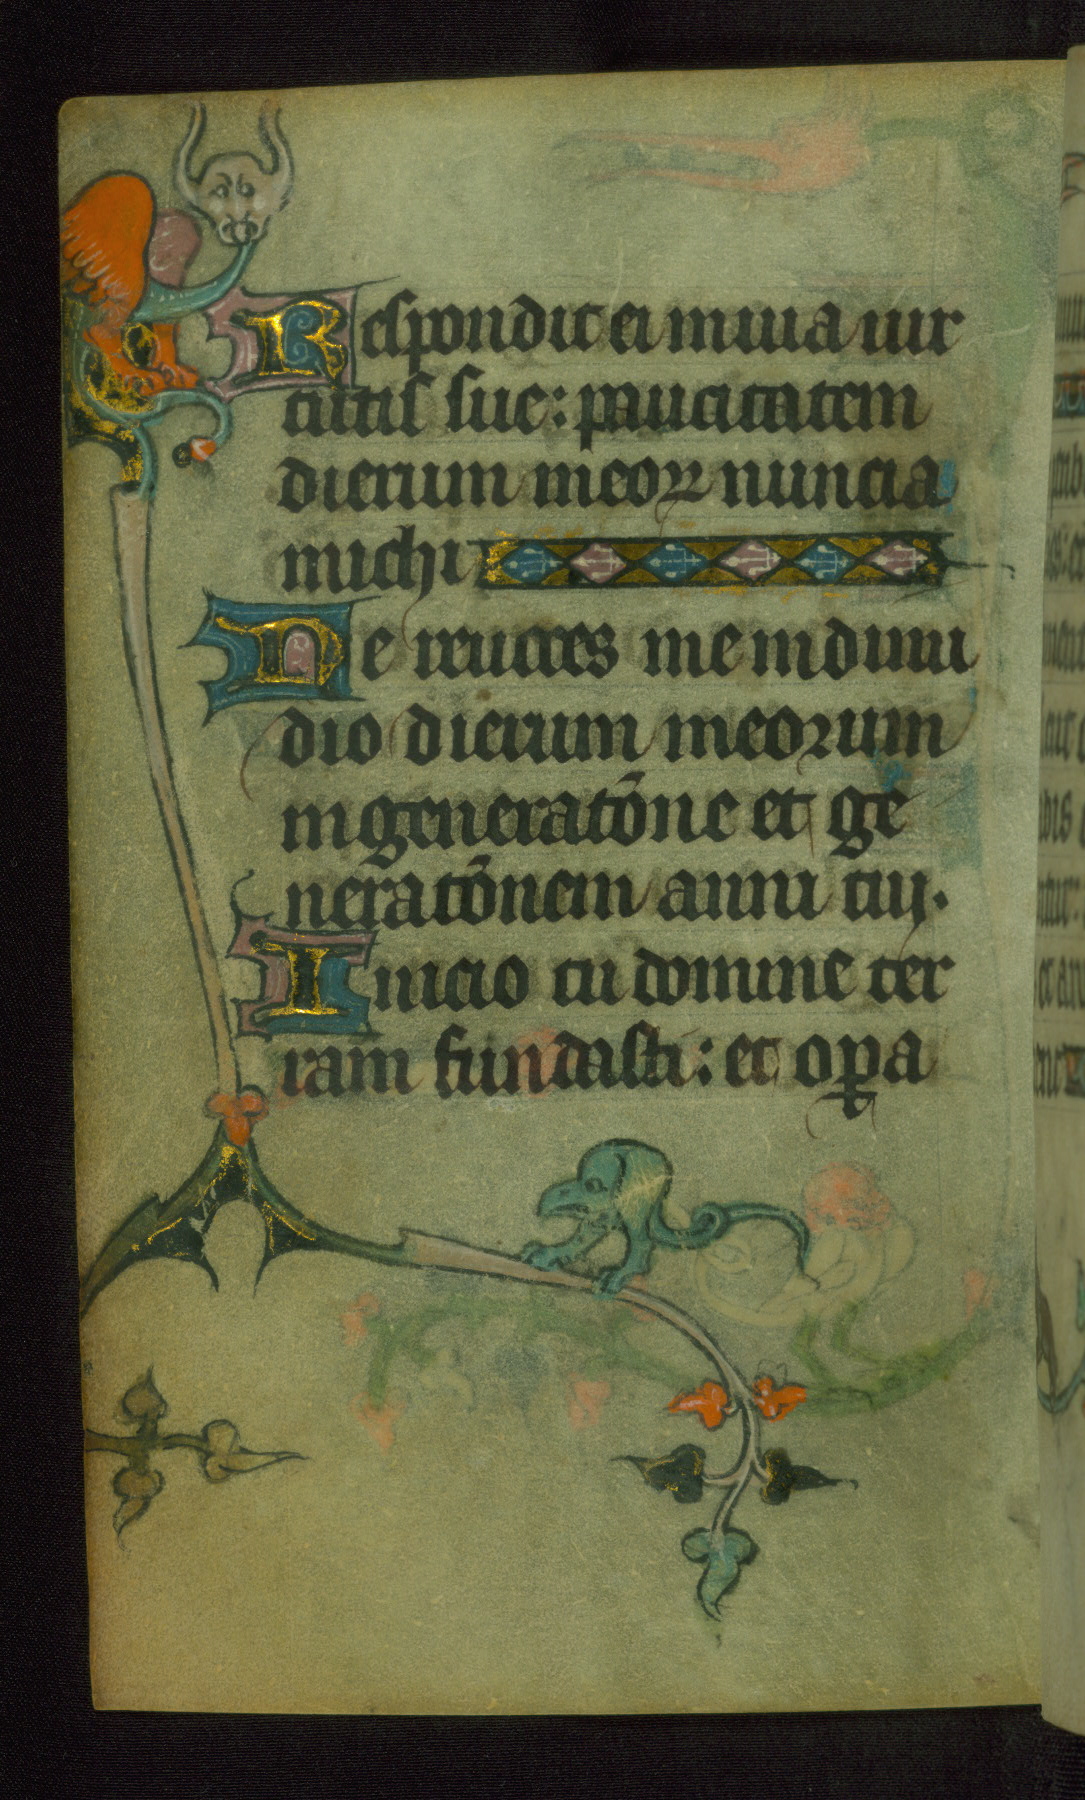 Respondit ei in uia uir
tutis sue: paucitatem
dierum meoꝝ nuncia
michi
Ne reuoces me in dimi
dio dierum meorum
in generatōne et ge
neratōnem anni tui.
Inicio tu domine ter
ram fundasti: et oꝑa